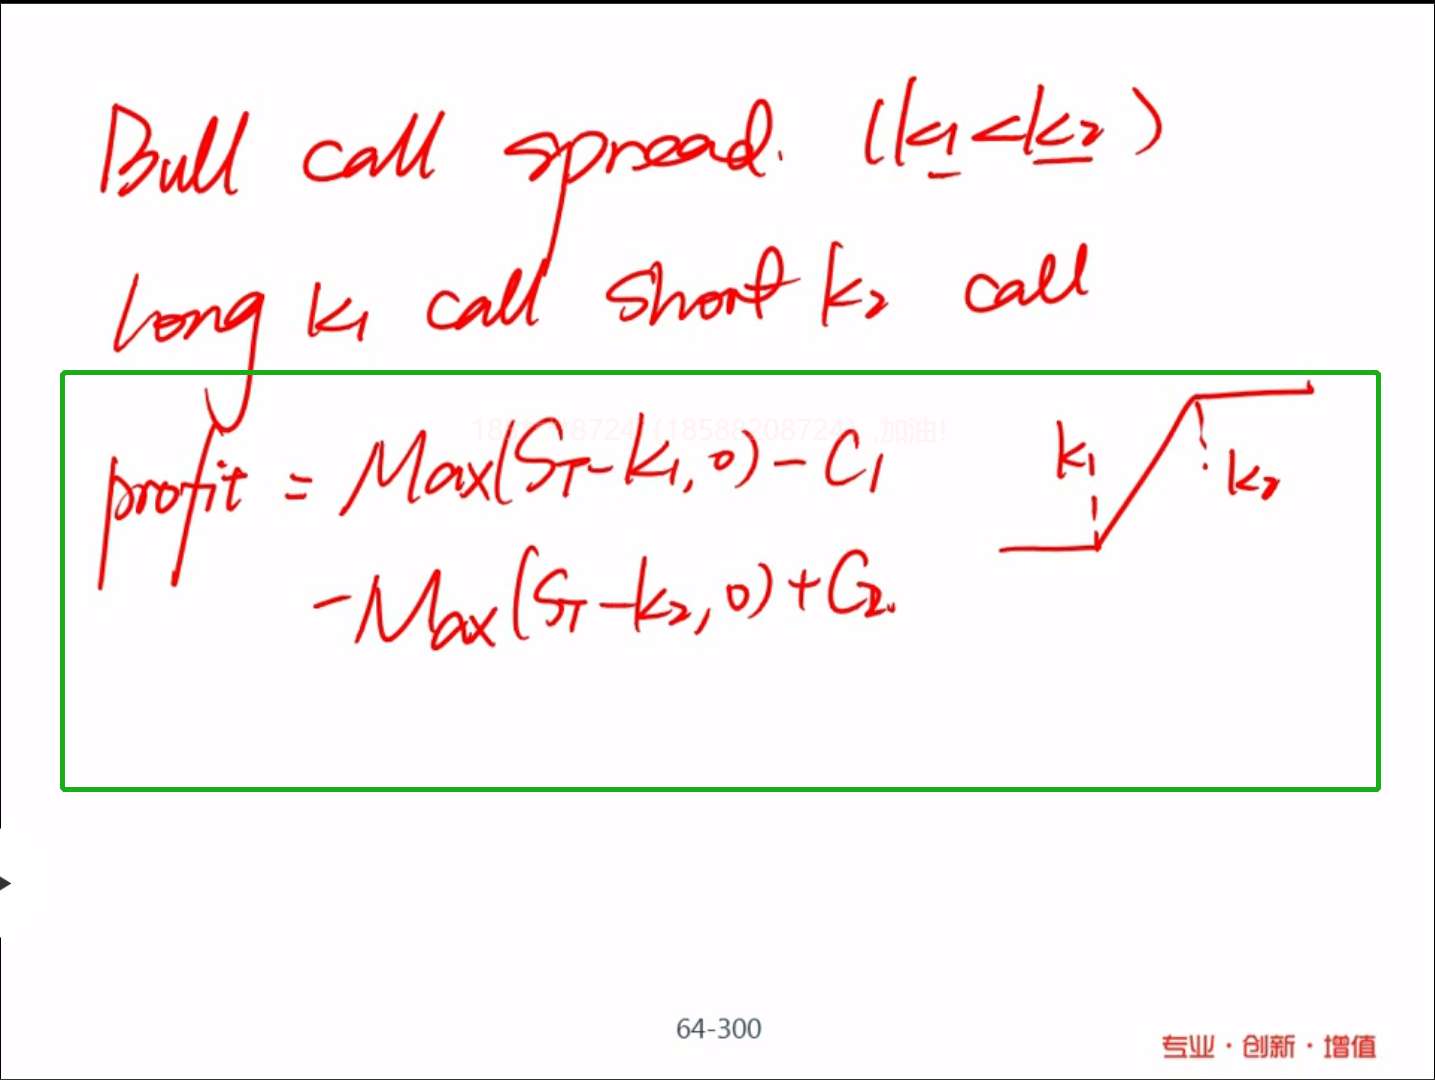 Bull call spread. (k1<k2)
long k1 call short k2 call
profit = Max(ST-k1,0)-C1
-Max(ST-k2,0)+C2.
k1
k2
64-300
专业·创新·增值